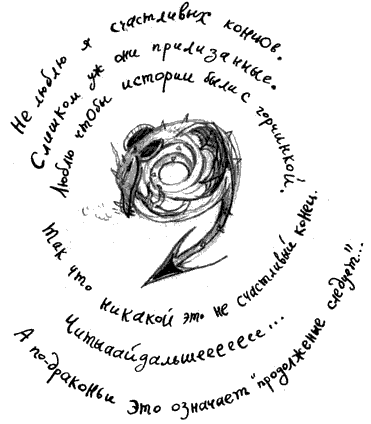 Не люблю я счастливых концов.
Слишком уж они прилизанные.
Люблю чтобы истории были с горчинкой.
Так что никакой это не счастливый конец.
Читыаайдальшеееееее...
А подраконьи это означает "продолжение следует"...